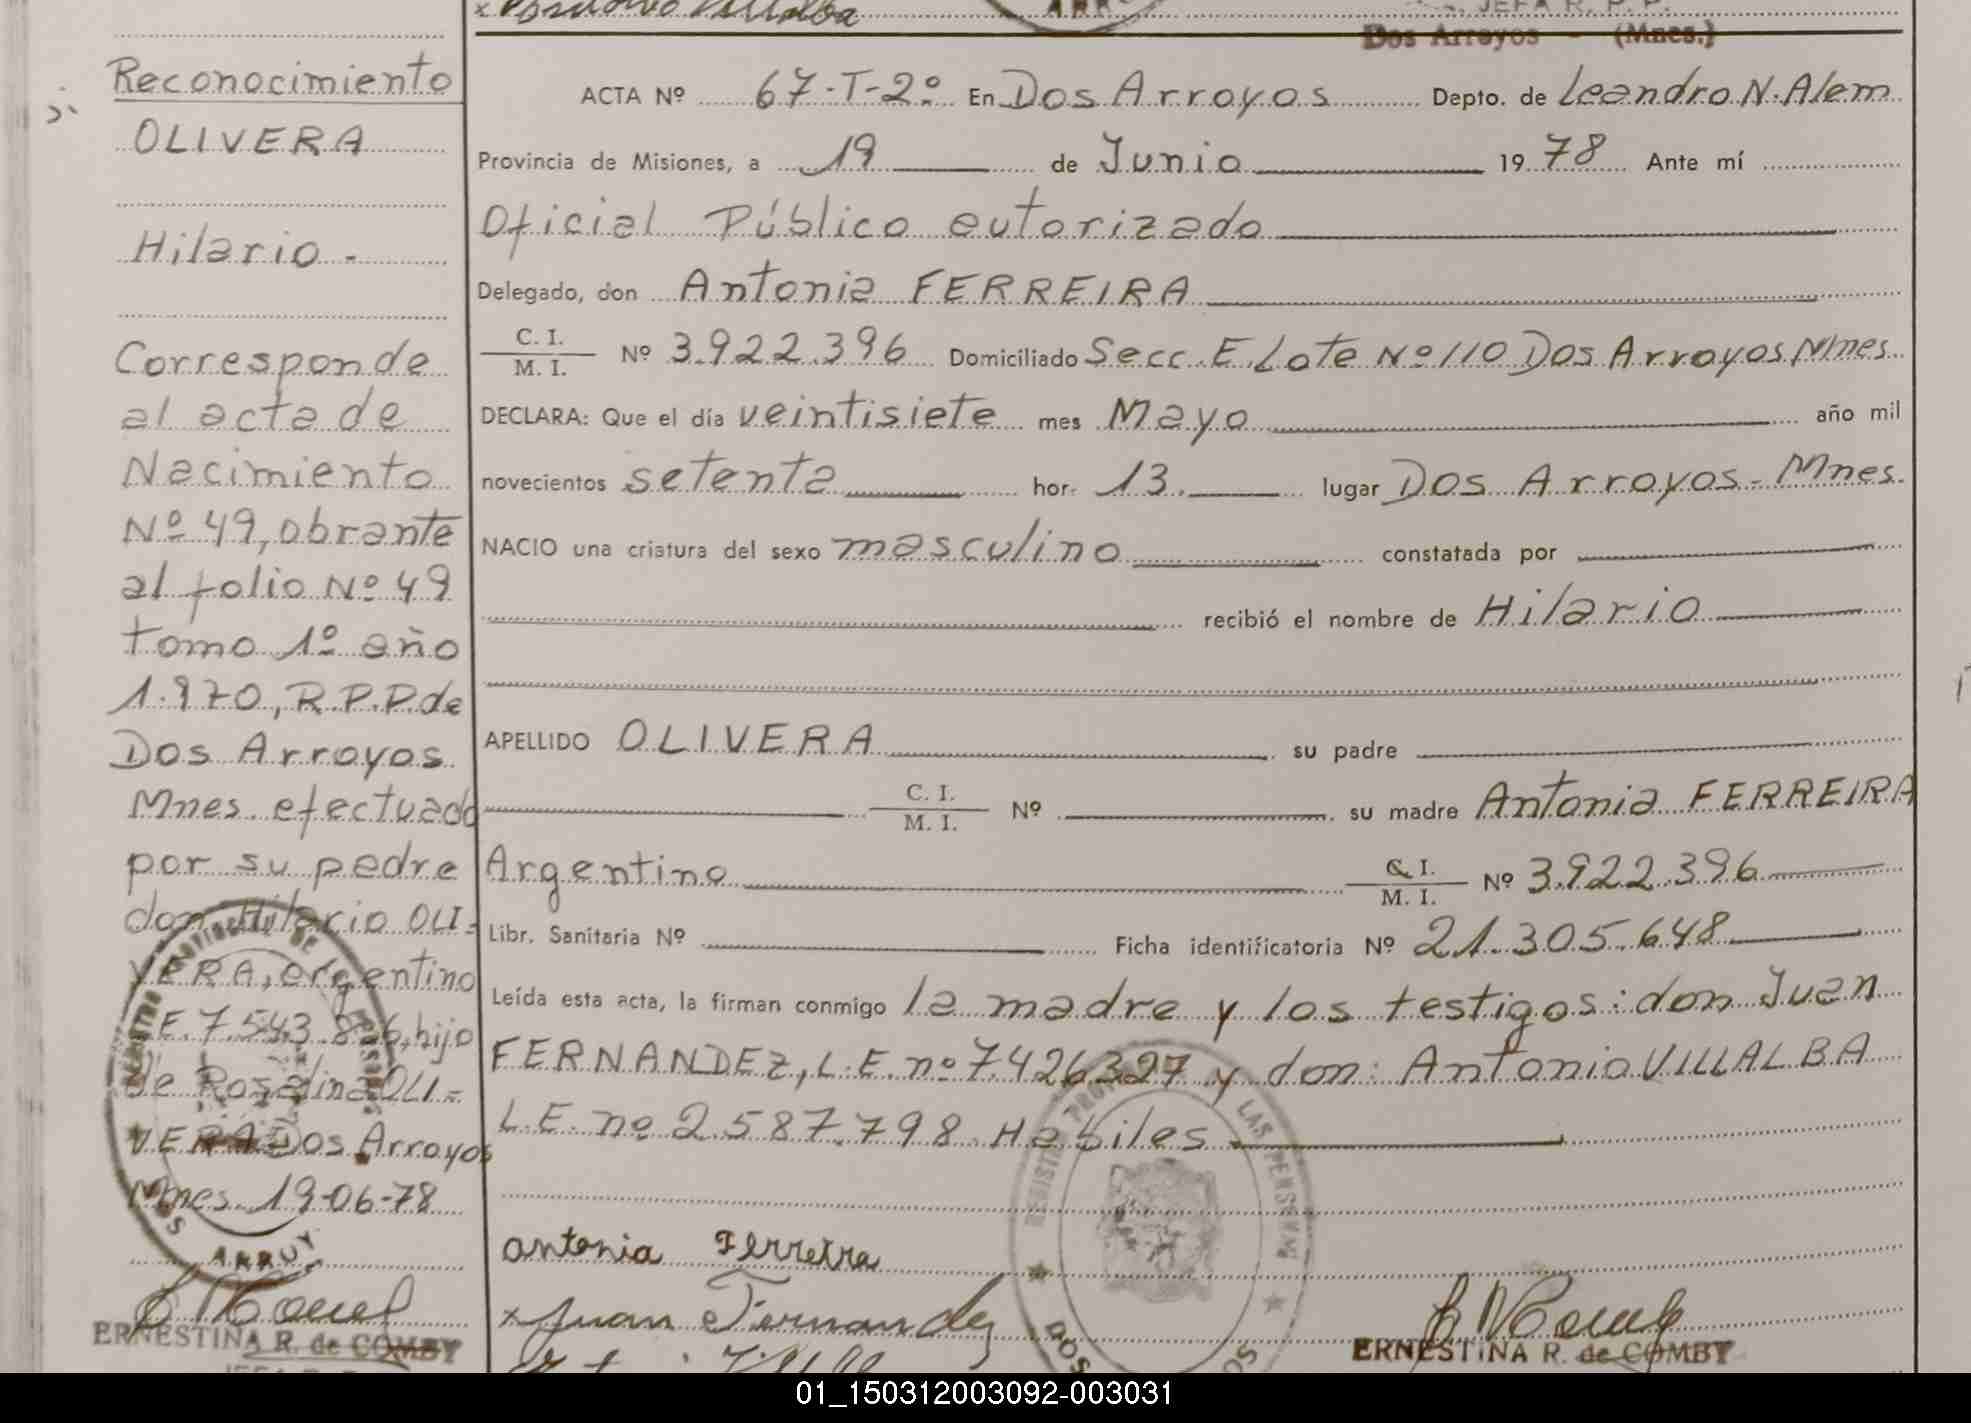 Dos Arroyos - (Mnes.)
Reconocimiento
OLIVERA
Hilario -
Corresponde
al acta de
Nacimiento
Nº 49, obrante
al folio Nº 49
tomo 1º año
1.970, R.P.P. de
Dos Arroyos
Mnes. efectuado
por su padre
don Hilario OLI=
VERA, argentino
L.E. 7.543.8 6, hijo
de Rosalina OLI=
VERA Dos Arroyos
Mnes. 19-06-78
ERNESTINA R. de COMBY
ACTA Nº 67-T-2º En Dos Arroyos Depto. de Leandro N. Alem
Provincia de Misiones, a 19 de Junio 1978 Ante mí
Oficial Público autorizado
Delegado, don Antonia FERREIRA
C. I.
M. I. Nº 3.922.396 Domiciliado Secc. E. Lote Nº 110 Dos Arroyos Mnes.
DECLARA: Que el día veintisiete mes Mayo año mil
novecientos setenta hor. 13. lugar Dos Arroyos - Mnes.
NACIO una criatura del sexo masculino constatada por
recibió el nombre de Hilario
APELLIDO OLIVERA su padre
C. I.
M. I. Nº su madre Antonia FERREIRA
Argentina C. I.
M. I. Nº 3.922.396
Libr. Sanitaria Nº Ficha identificatoria Nº 21.305.648
Leída esta acta, la firman conmigo la madre y los testigos: don Juan
FERNANDEZ, L.E. nº 7.426.327 y don: Antonio VILLALBA
L.E. nº 2.587.798. Habiles
antonia Ferreira
x Juan Fernandez
ERNESTINA R. de COMBY
01_150312003092-003031